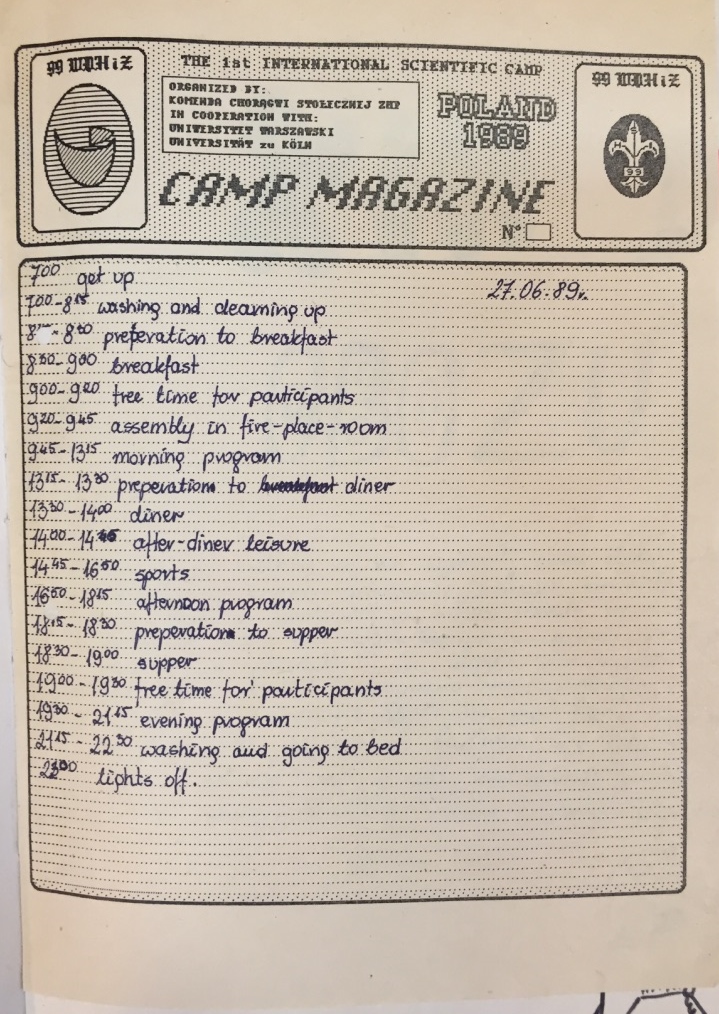 99 WDHiZ
THE 1st INTERNATIONAL SCIENTIFIC CAMP
99 WDHiZ
ORGANIZED BY:
KOMENDA CHORĄGWI STOŁECZNEJ ZHP
IN COOPERATION WITH:
UNIWERSYTET WARSZAWSKI
UNIVERSITÄT zu KÖLN
POLAND
1989
99
CAMP MAGAZINE
N°
27.06.89r.
700 get up
7.00-8 15 washing and cleaming up
preperation to breakfast
8 30-9 00 breakfast
9 00-9 20 free time for participants
9 20-9 45 assembly in fire-place-room
9 45-13 15 morning program
13 15-13 30 preperation to breakfast diner
13 30-14 00 diner
14 00-14 45 after-diner leisure
14 45-16 00 sports
16 00-18 15 afternoon program
18 15-18 30 preperation to supper
18 30-19 00 supper
19 00-19 30 free time for participants
19 30-21 15 evening program
21 15-22 30 washing and going to bed
lights off.